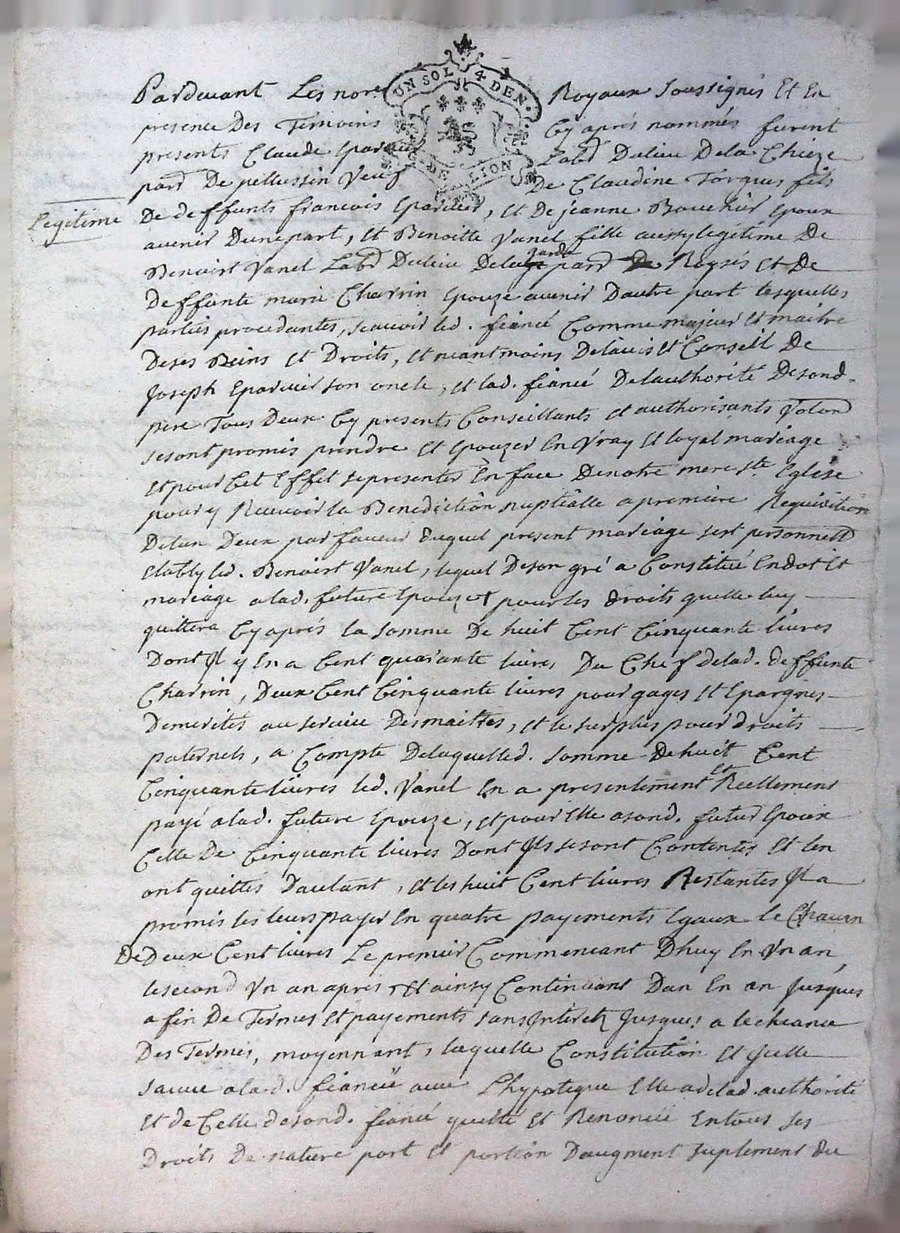 UN SOL 4 DEN.
DE LYON
Pardevant Les nores Royaux Soussignés Et En
presence Des Temoins Cy aprés nommés furent
presents Claude Eparvier Labr Dulieu Dela Chieze
parr De pellussin Veuf De Claudine Torgues fils
Legitime
De deffunts francois Eparvier, Et De jeanne Bouchür Epoux
avenir Dunepart, Et Benoitte Vanel fille aussy legitime De
Benoist Vanel Labr Dulieu Dela garde parr De Roysés Et De
Deffunte marie Charrin Epouze avenir Dautre part lesquelles
parties procedantes, scauoir led. fiancé Comme majeur Et maitre
Deses Biens Et Droits, Et neantmoins Delavis Et Conseil De
Joseph Eparvier son oncle, Et lad. fiancé Delauthorité Desond.
pere Tous Deux Cy presents Conseillants Et authorisants
sesont promis prendre Et Epouzer En Vray Et loyal mariage
Et pour Cet Effet sepresenter En face Denotre mere ste Eglise
pour y Recevoir la Benediction nuptialle a premiere Requisition
Delun Deux par faveur Duquel present mariage sest personnell
Etably led. Benoist Vanel, lequel Deson gré a Constitué Endot Et
mariage alad. future Epouze Et pour les droits quelle luy
quittera Cy aprés la somme De huit Cent Cinquante livres
Dont Il y En a Cent quarante livres Du Chef delad. deffunte
Charrin, Deux Cent Cinquante livres pour gages Et Epargnes
Demerités au service Desmaitres, Et le surplus pour droits
paternels, a Compte Delaquelled. somme De huit Cent
Cinquante livres led. Vanel En a presentement Et Reellement
payé alad. future Epouze, Et pour Elle asond. futur Epoux
Celle De Cinquante livres Dont Ils sesont Contentés Et Len
ont quittés Dautant, Et les huit Cent livres Restantes Il a
promis les leurs payer En quatre payements Egaux le Chacun
De Deux Cent livres Le premier Commencant Dhuy En Vn an,
lesecond Vn an aprés Et ainsy Continuant Dan En an Jusques
a fin De Termes Et payements sans Interetz Jusques a lecheance
Des Termes, moyennant, laquelle Constitution Et Jcelle
sauve alad. fiancée avec Lhypoteque Elle adelad. authorité
Et de Celle desond. fiancé quitté Et Renoncé Entous ses
Droits De nature part Et portion Daugment suplement Du